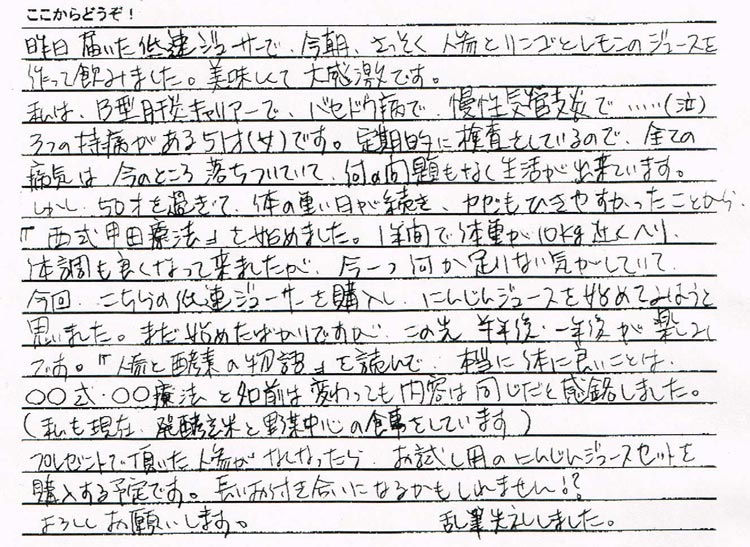 ここからどうぞ!
昨日届いた低速ジューサーで、今朝、さっそく人参とリンゴとレモンのジュースを
作って飲みました。美味しくて大感激です。
私は、B型肝炎キャリアーで、バセドウ病で、慢性気管支炎で……(泣)
3つの持病がある51才(女)です。定期的に検査をしているので、全ての
病気は今のところ落ちついていて、何の問題もなく生活が出来ています。
しかし、50才を過ぎて、体の重い日が続き、カゼもひきやすかったことから、
『西式甲田療法』を始めました。1年間で体重が10kg近くへり、
体調も良くなって来ましたが、今一つ何か足りない気がしていて、
今回、こちらの低速ジューサーを購入し、にんじんジュースを始めてみようと
思いました。まだ始めたばかりですが、この先半年後・一年後が楽しみ
です。『人参と酵素の物語』を読んで、本当に体に良いことは、
〇〇式・〇〇療法と名前は変わっても内容は同じだと感銘しました。
(私も現在、発酵玄米と野菜中心の食事をしています)
プレゼントで頂いた人参がなくなったら、お試し用のにんじんジュースセットを
購入する予定です。長いお付き合いになるかもしれません!?
よろしくお願いします。 乱筆失礼しました。